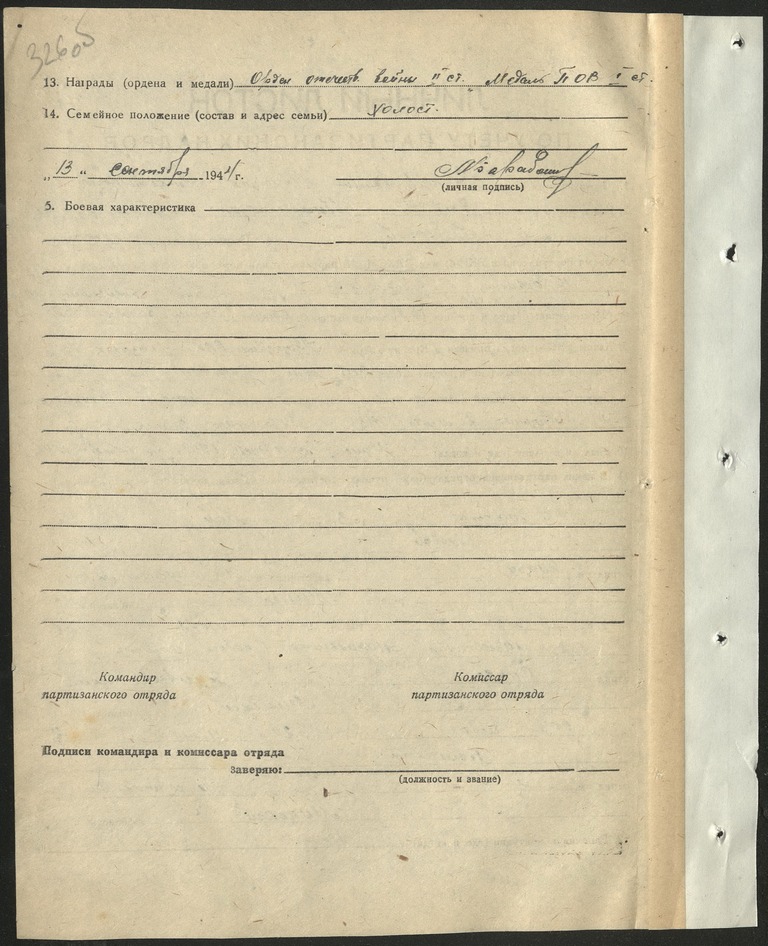 32605
13. Награды (ордена и медали) Орден отечеств. войны II ст. Медаль ПОВ I ст.
14. Семейное положение (состав и адрес семьи) холост.
„13" сентября 1944 г.
(личная подпись)
5. Боевая характеристика
Командир
партизанского отряда
Комиссар
партизанского отряда
Подписи командира и комиссара отряда
заверяю:
(должность и звание)